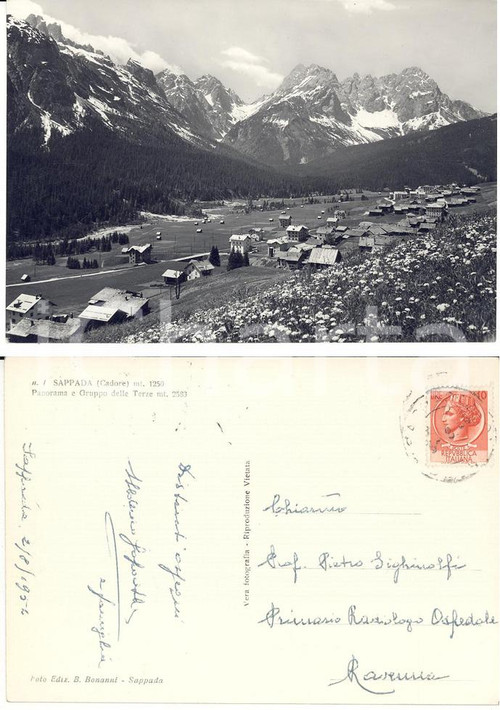 n. 1 SAPPADA (Cadore) mt. 1250
Panorama e Gruppo delle Terze mt. 2583
Sappada, 2/8/1954
Distinti ossequi
e famiglia
Vera fotografia - Riproduzione Vietata
10
REPUBBLICA
ITALIANA
Chiar.mo
Prof. Pietro Sighinolfi
Primario Radiologo Ospedale
Ravenna
Foto Ediz. B. Bonanni - Sappada